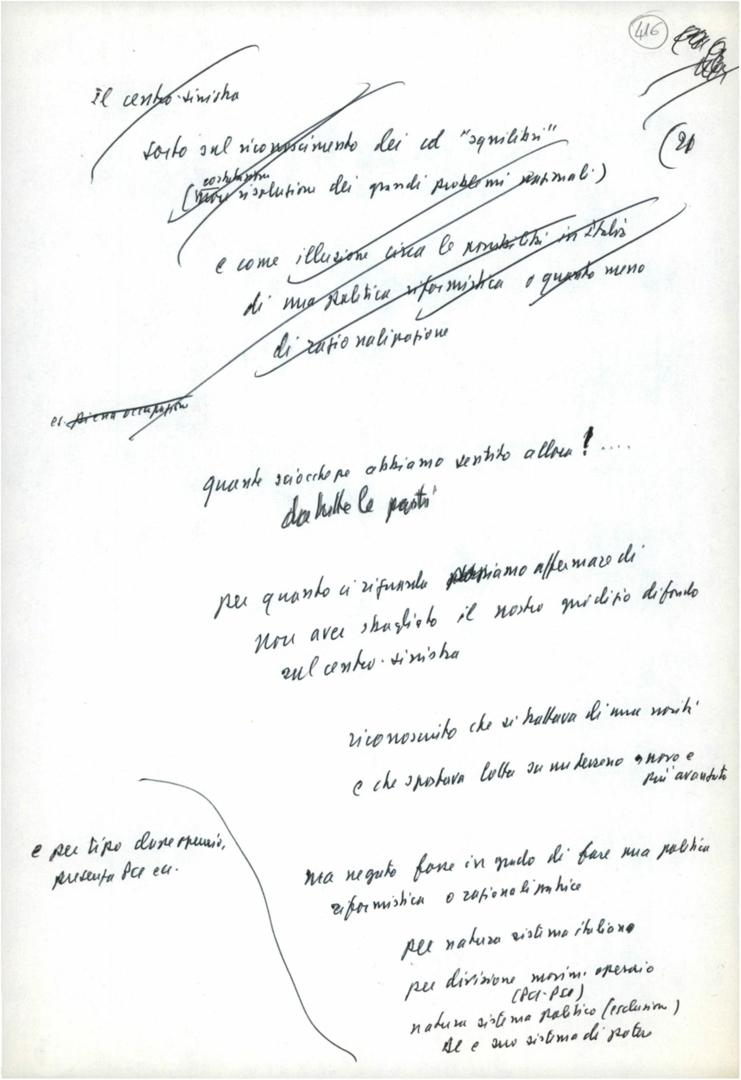 416
(20
Il centro-sinistra
sorto sul riconoscimento dei cd "squilibri"
(risoluzione dei grandi problemi nazionali)
e come illusione circa le possibilità in Italia
di una politica riformistica o quanto meno
di razionalizzazione
es. piena occupazione
quante sciocchezze abbiamo sentito allora! ....
da tutte le parti
per quanto ci riguarda possiamo affermare di
non aver sbagliato il nostro giudizio di fondo
sul centro-sinistra
riconosciuto che si trattava di una novità
e che spostava lotta su un terreno nuovo e
più avanzato
e per tipo classe operaia,
presenza Pci ecc.
ma negato fosse in grado di fare una politica
riformistica o razionalizzatrice
per natura sistema italiano
per divisione movim. operaio
(PCI-PSI)
natura sistema politico (esclusion)
DC e suo sistema di potere